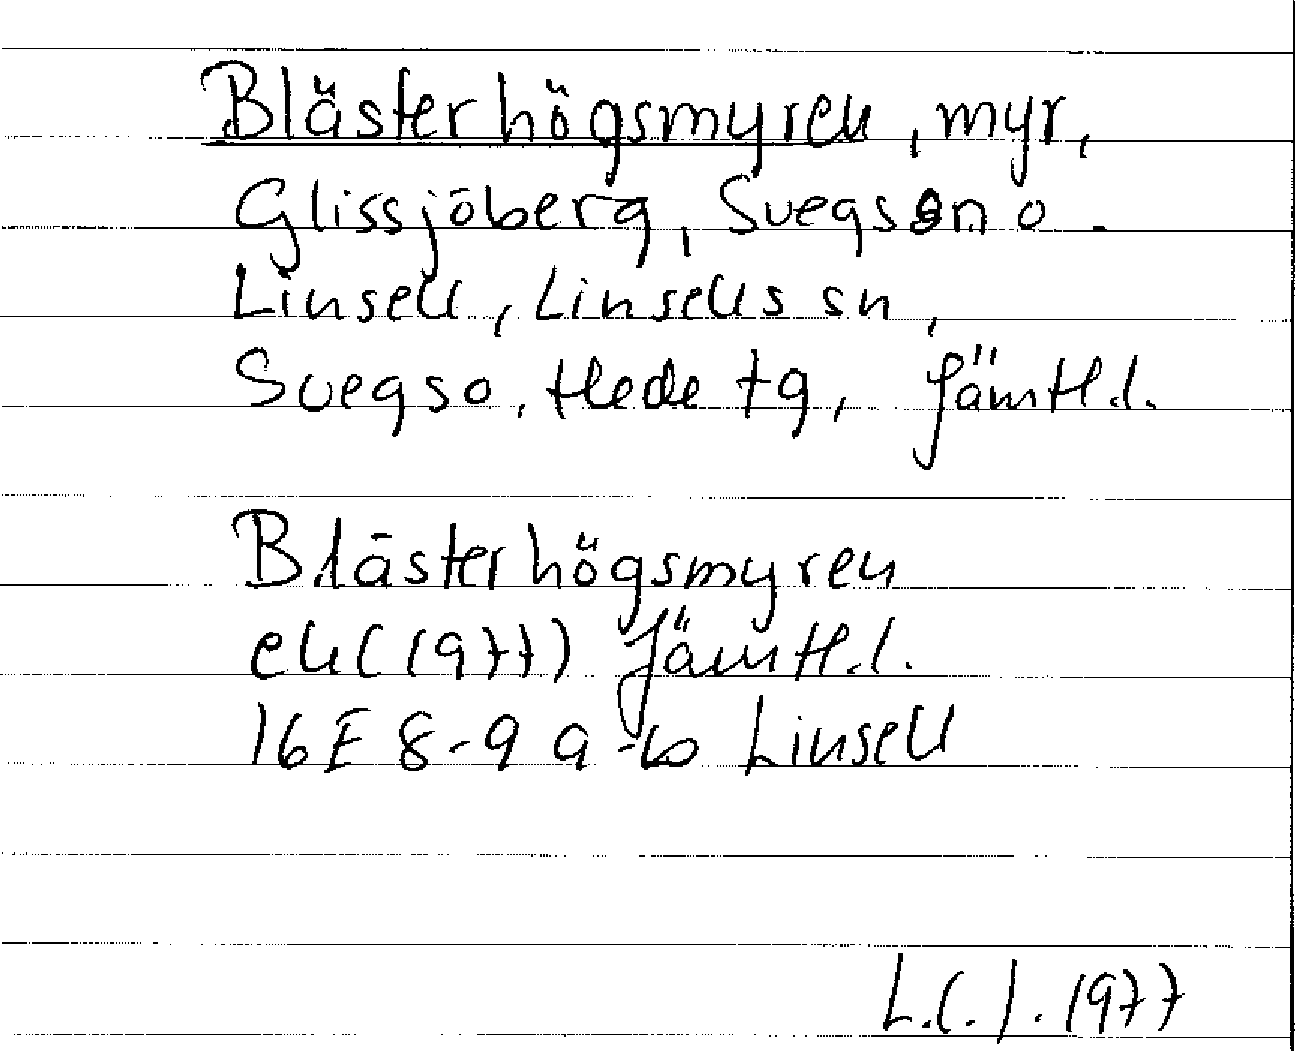 Blästerhögsmyren, myr,
Glissjöberg, Svegs sn o.
Linsell, Linsells sn,
Svegs o. Hede tg, Jämtl.l.
Blästerhögsmyren
ek (1977) Jämtl.l.
16E 8-9 a-b Linsell
1977